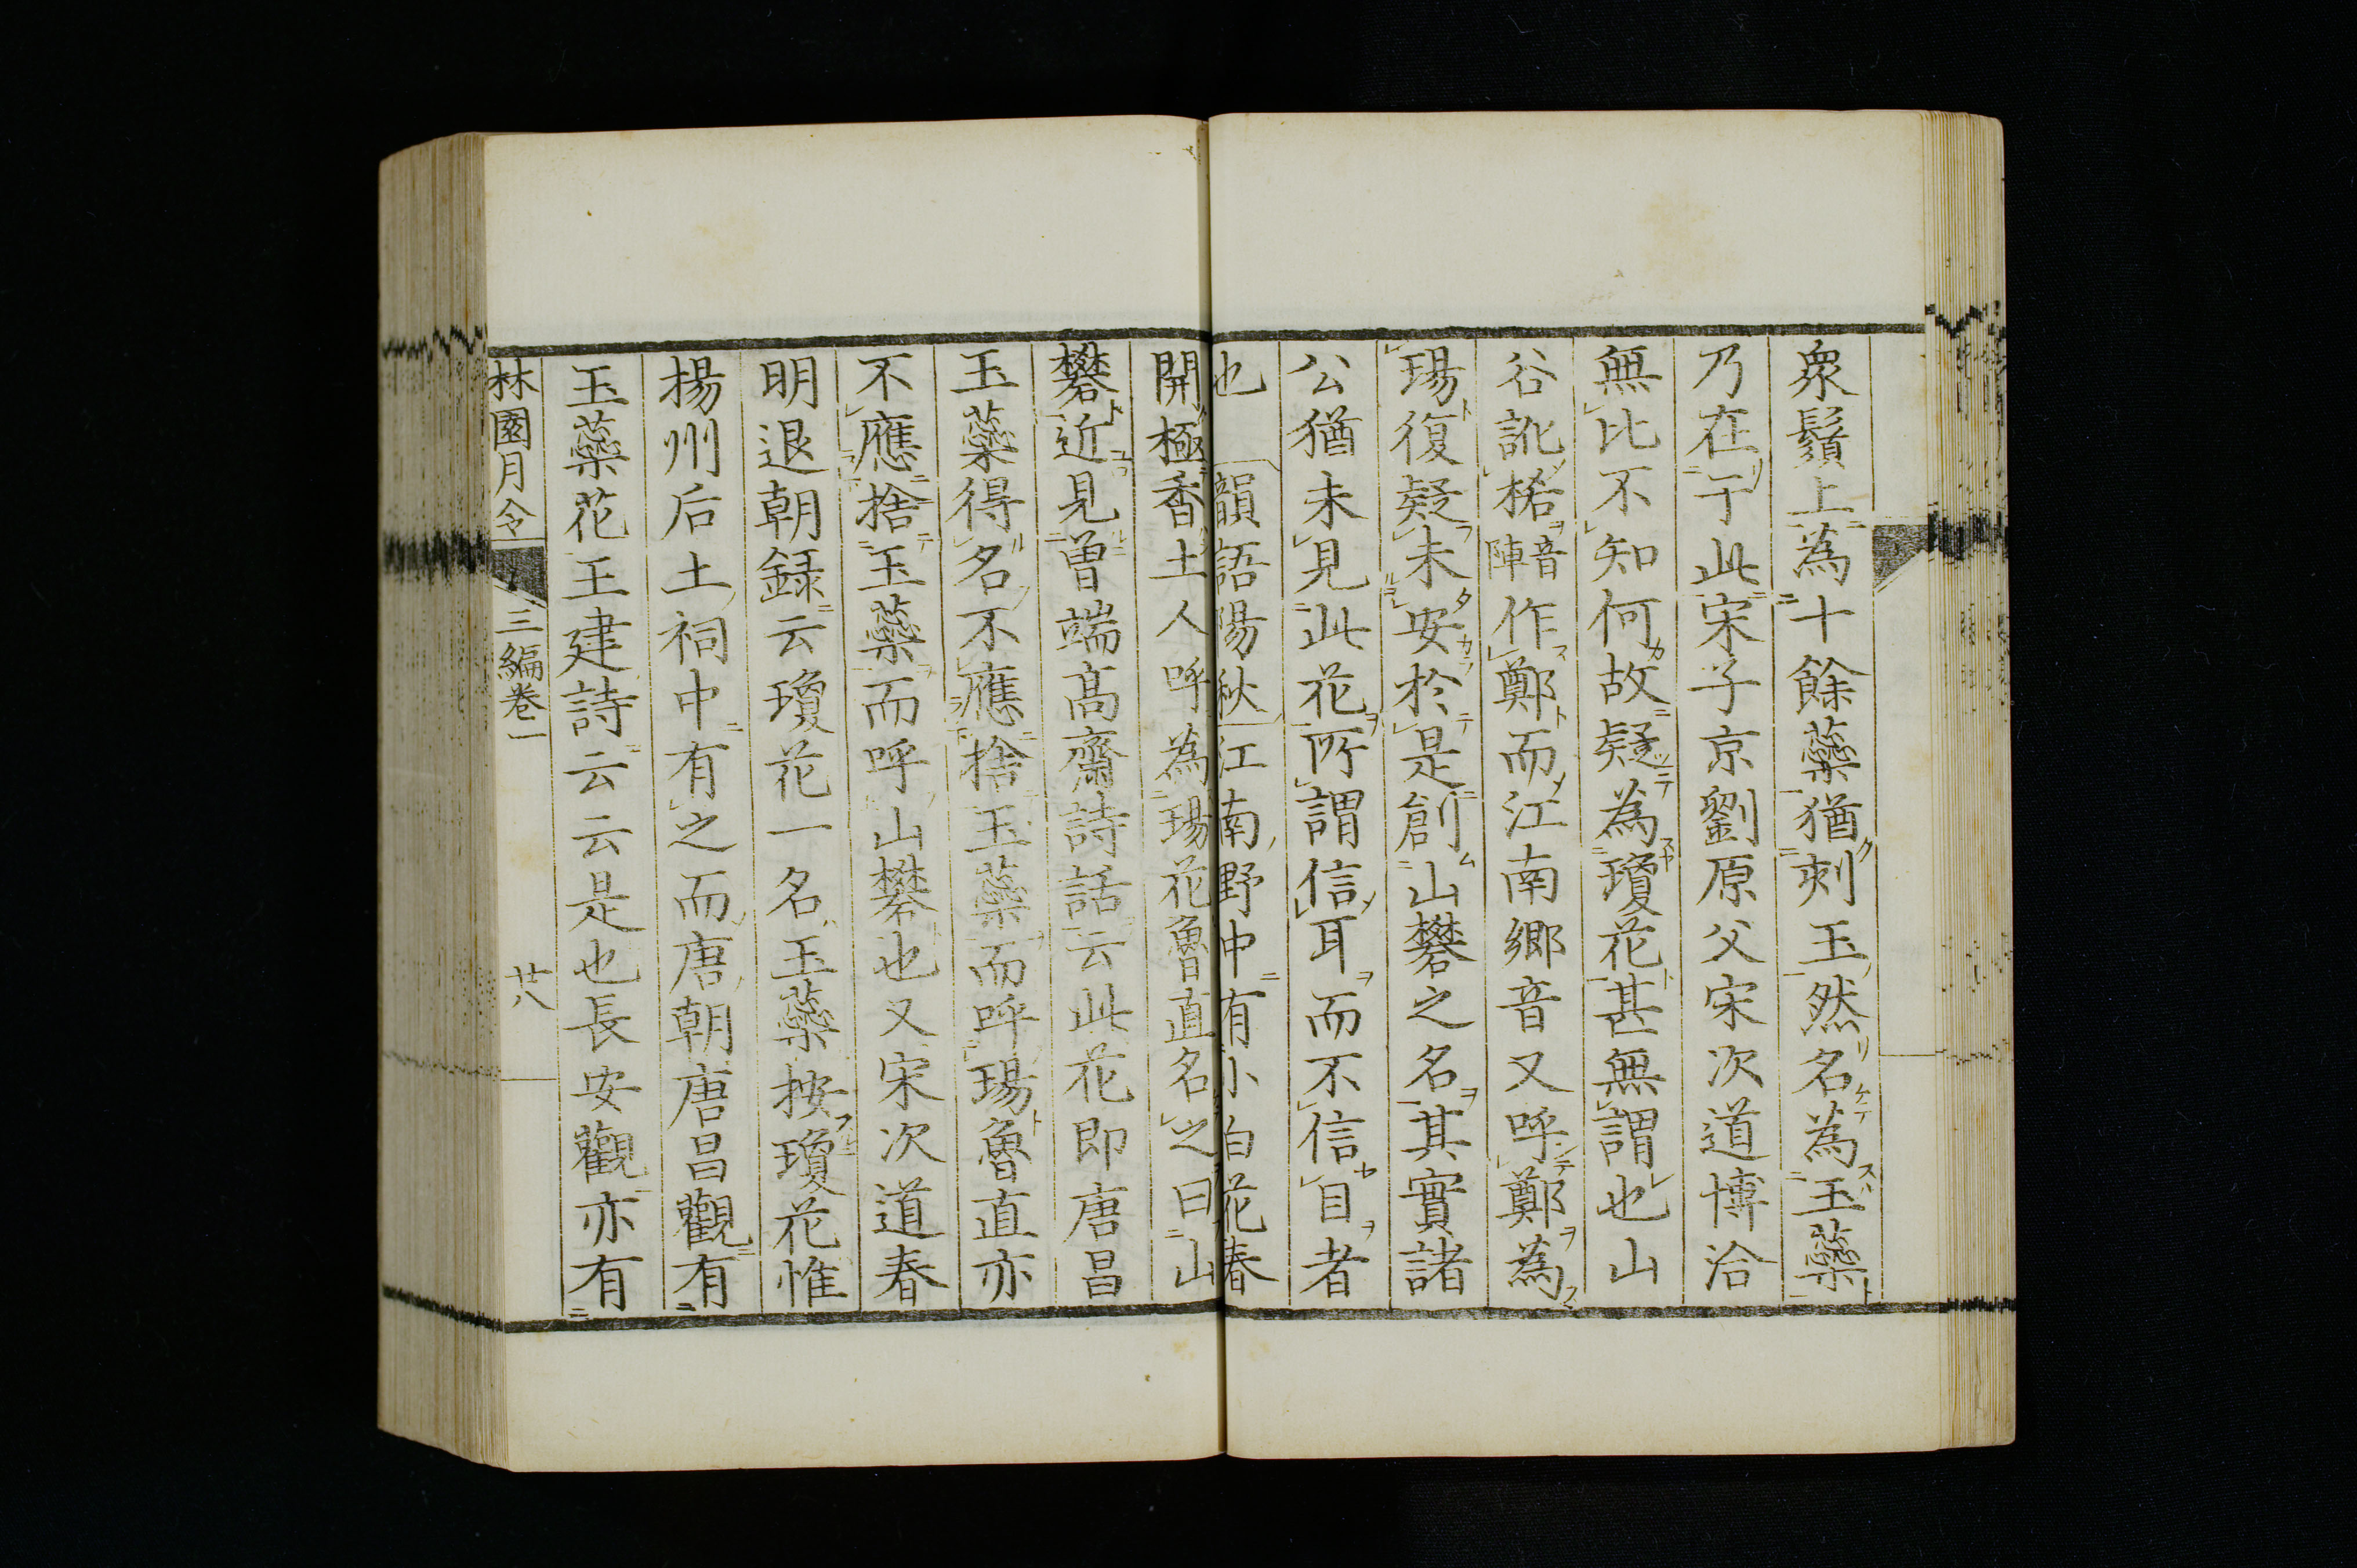 衆鬚上為十餘蘂猶刻玉然名為玉蘂
乃在于此宋子京劉原父宋次道博洽
無比不知何故疑為瓊花甚無謂也山
谷訛桾音陣作鄭而江南鄉音又呼鄭為
瑒復疑未安於是創山礬之名其實諸
公猶未見此花所謂信耳而不信目者
也 韻語陽秋 江南野中有小白花春
開極香土人呼為瑒花魯直名之曰山
礬近見曽端髙齋詩話云此花即唐昌
玉蘂得名不應捨玉蘂而呼瑒魯直亦
不應捨玉蘂而呼山礬也又宋次道春
明退朝録云瓊花一名玉蘂按瓊花惟
揚州后土祠中有之而唐朝唐昌觀有
玉蘂花王建詩云云是也長安觀亦有
林園月令 三編卷一 廿八